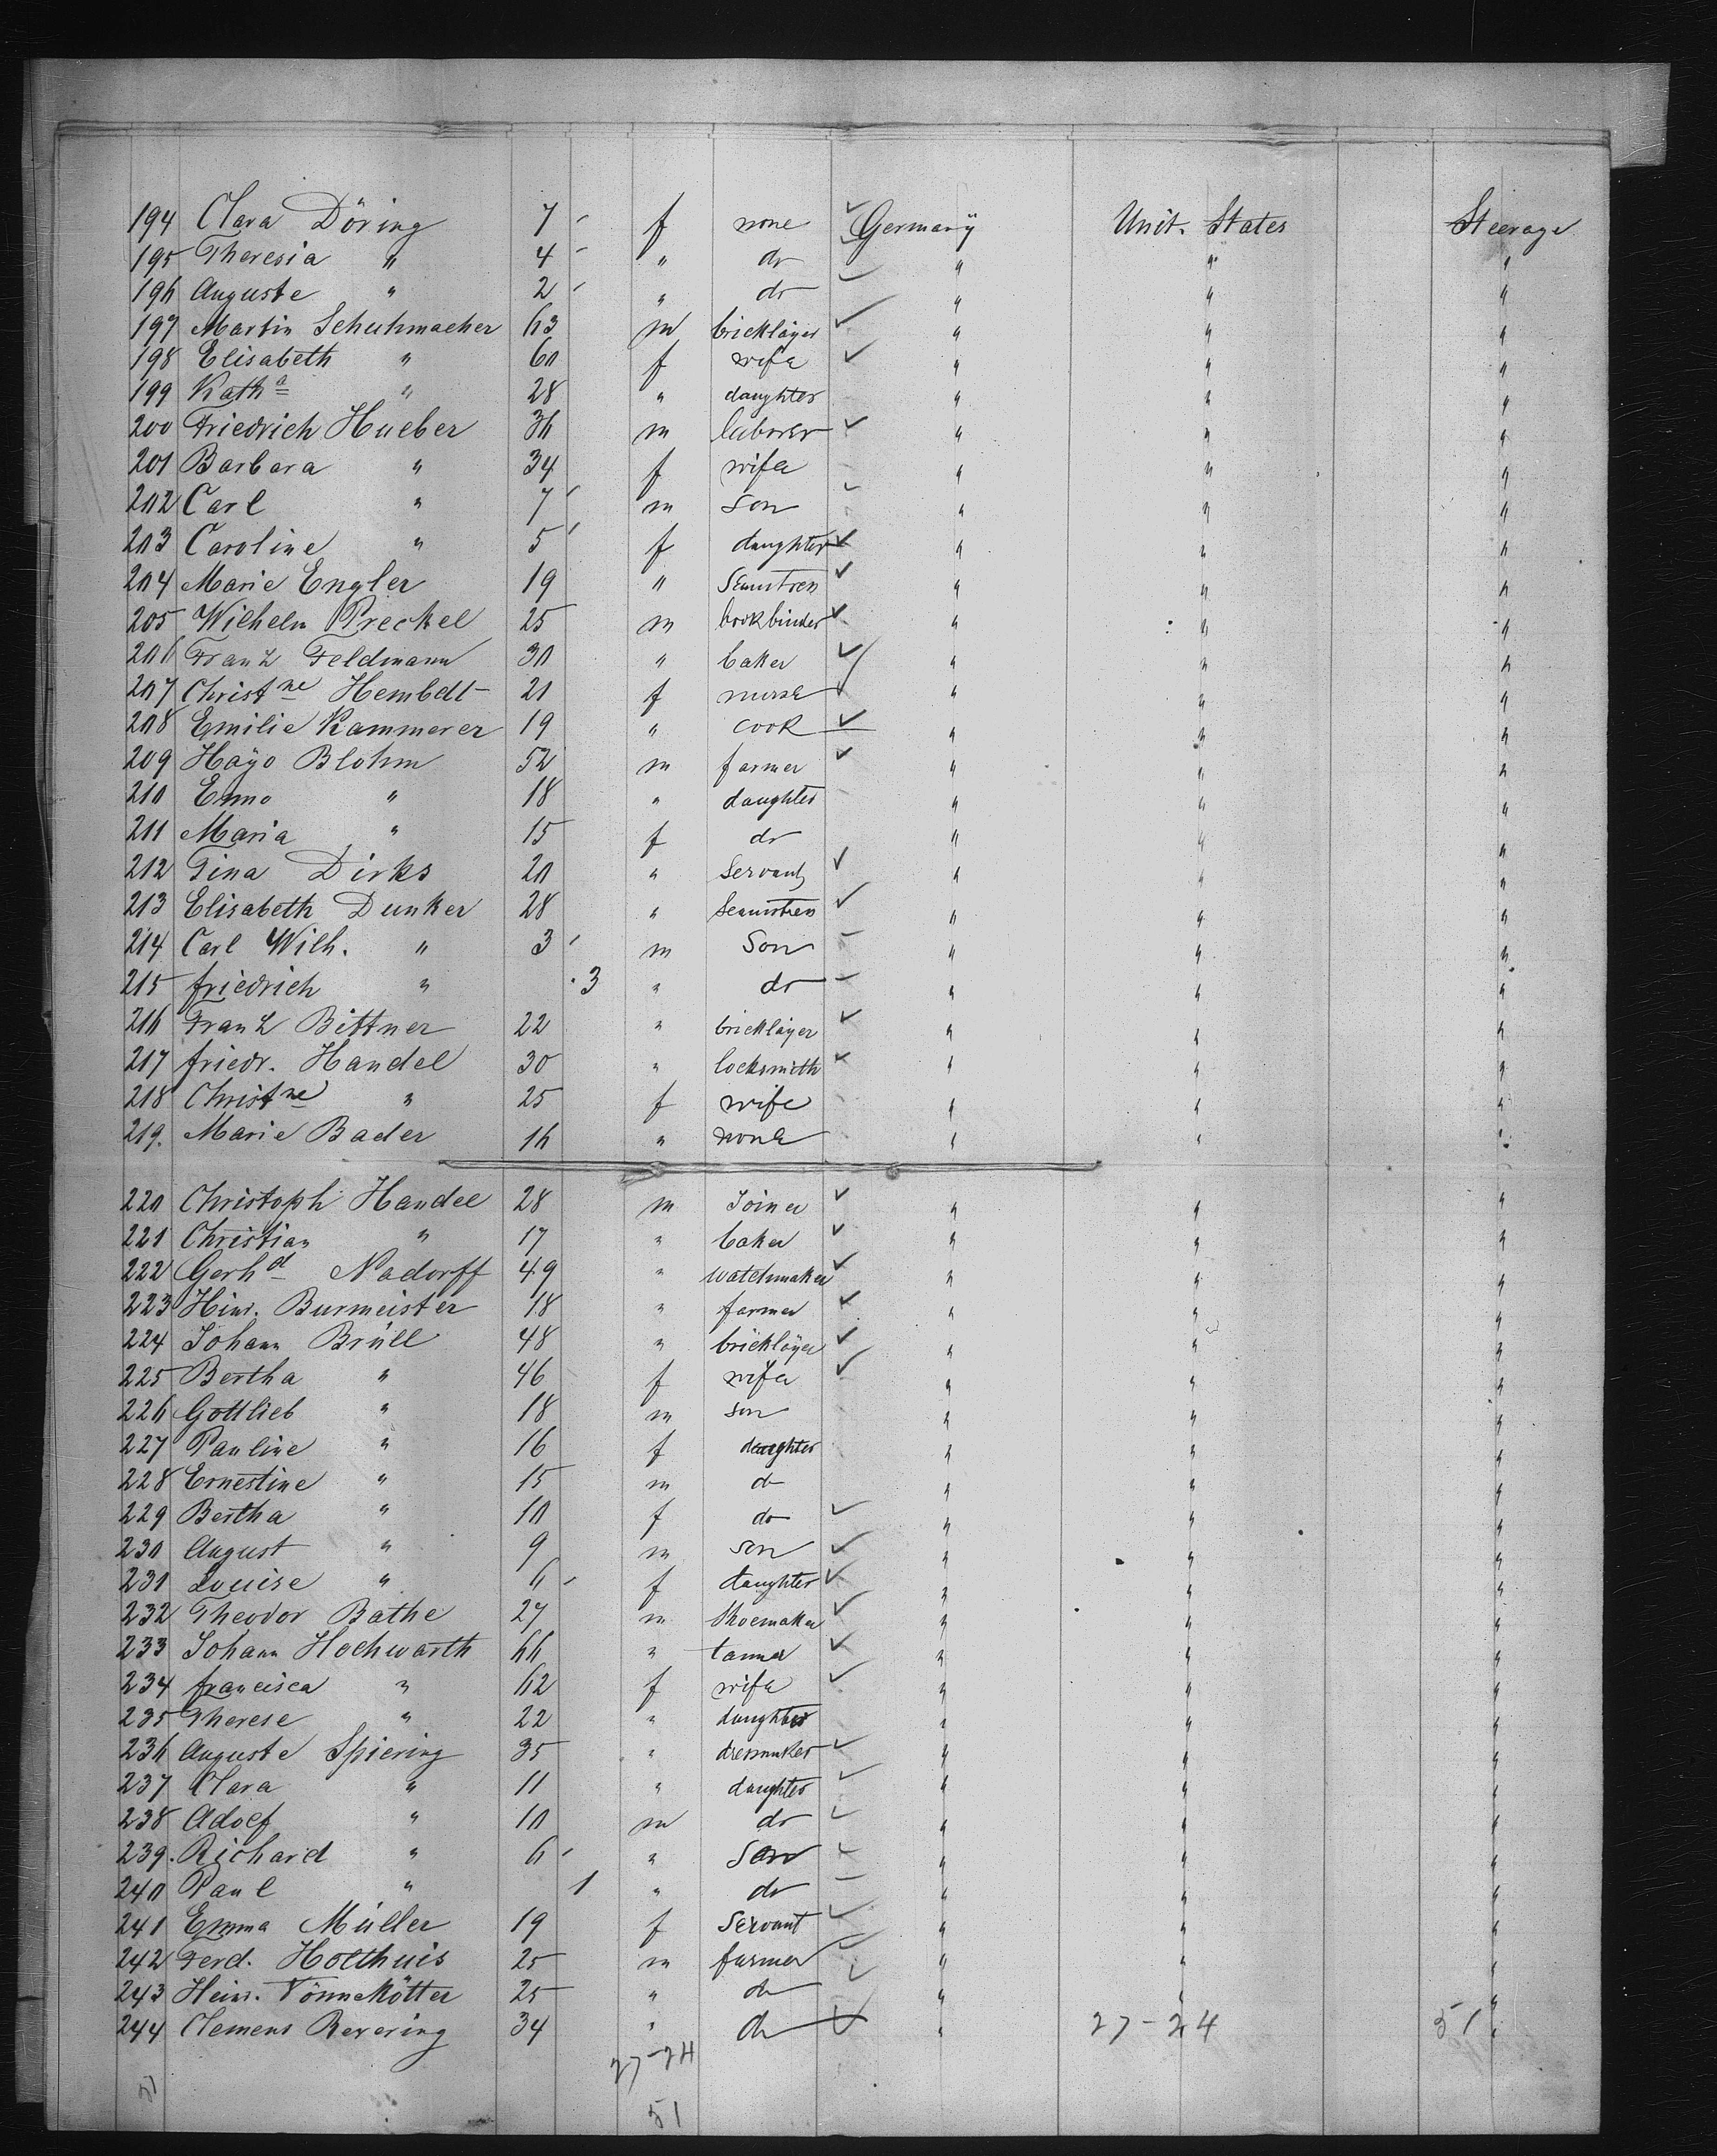 194 Clara Döring 7 - f none Germany Unit. States Steerage
195 Theresia " 4 - " do " " "
196 Auguste " 2 - " do " " "
197 Martin Schuhmacher 63 m bricklayer " " "
198 Elisabeth " 60 f wife " " "
199 Kath a " 28 " daughter " " "
200 Friedrich Hueber 36 m laborer " " "
201 Barbara " 34 f wife " " "
202 Carl " 7 m son " " "
203 Caroline " 5 f daughter " " "
204 Marie Engler 19 " Seamstress " " "
205 Wilhelm Preckel 25 m bookbinder " " "
206 Franz Feldmann 30 " baker " " "
207 Christne Hembdt 20 f nurse " " "
208 Emilie Kammerer 19 " cook " " "
209 Hayo Blohm 52 m farmer " " "
210 Enno " 18 " daughter " " "
211 Maria " 15 f do " " "
212 Tina Dirks 20 " Servant " " "
213 Elisabeth Dunker 28 " Seamstress " " "
214 Carl Wilh. " 3 m Son " " "
215 friedrich " .3 " do " " "
216 Franz Bittner 22 " bricklayer " " "
217 friedr. Handel 30 " locksmith " " "
218 Christne " 25 f wife " " "
219. Marie Bader 16 " none " " "
220 Christoph Handel 28 m Joiner " " "
221 Christian " 17 " baker " " "
222 Gerhd Nadorff 49 " watchmaker " " "
223 Hinr. Burmeister 18 " farmer " " "
224 Johann Brüll 48 " bricklayer " " "
225 Bertha " 46 f wife " " "
226 Gottlieb " 18 m son " " "
227 Pauline " 16 f daughter " " "
228 Ernestine " 15 m do " " "
229 Bertha " 10 f do " " "
230 August " 9 m son " " "
231 Louise " 6 - f daughter " " "
232 Theodor Bathe 27 m Shoemaker " " "
233 Johann Hochwarth 66 " tanner " " "
234 francisca " 62 f wife " " "
235 Therese " 22 " daughter " " "
236 Auguste Spiering 35 " dressmaker " " "
237 Clara " 11 " daughter " " "
238 Adolf " 10 m do " " "
239. Richard " 6 - " Son " " "
240 Paul " 1 " do " " "
241 Emma Müller 19 f Servant " " "
242 Ferd. Holthuis 25 m farmer " " "
243 Heinr. Tönnekötter 25 " do " " "
244 Clemens Revering 34 " do " 27-24 51 "
27-24
51
51